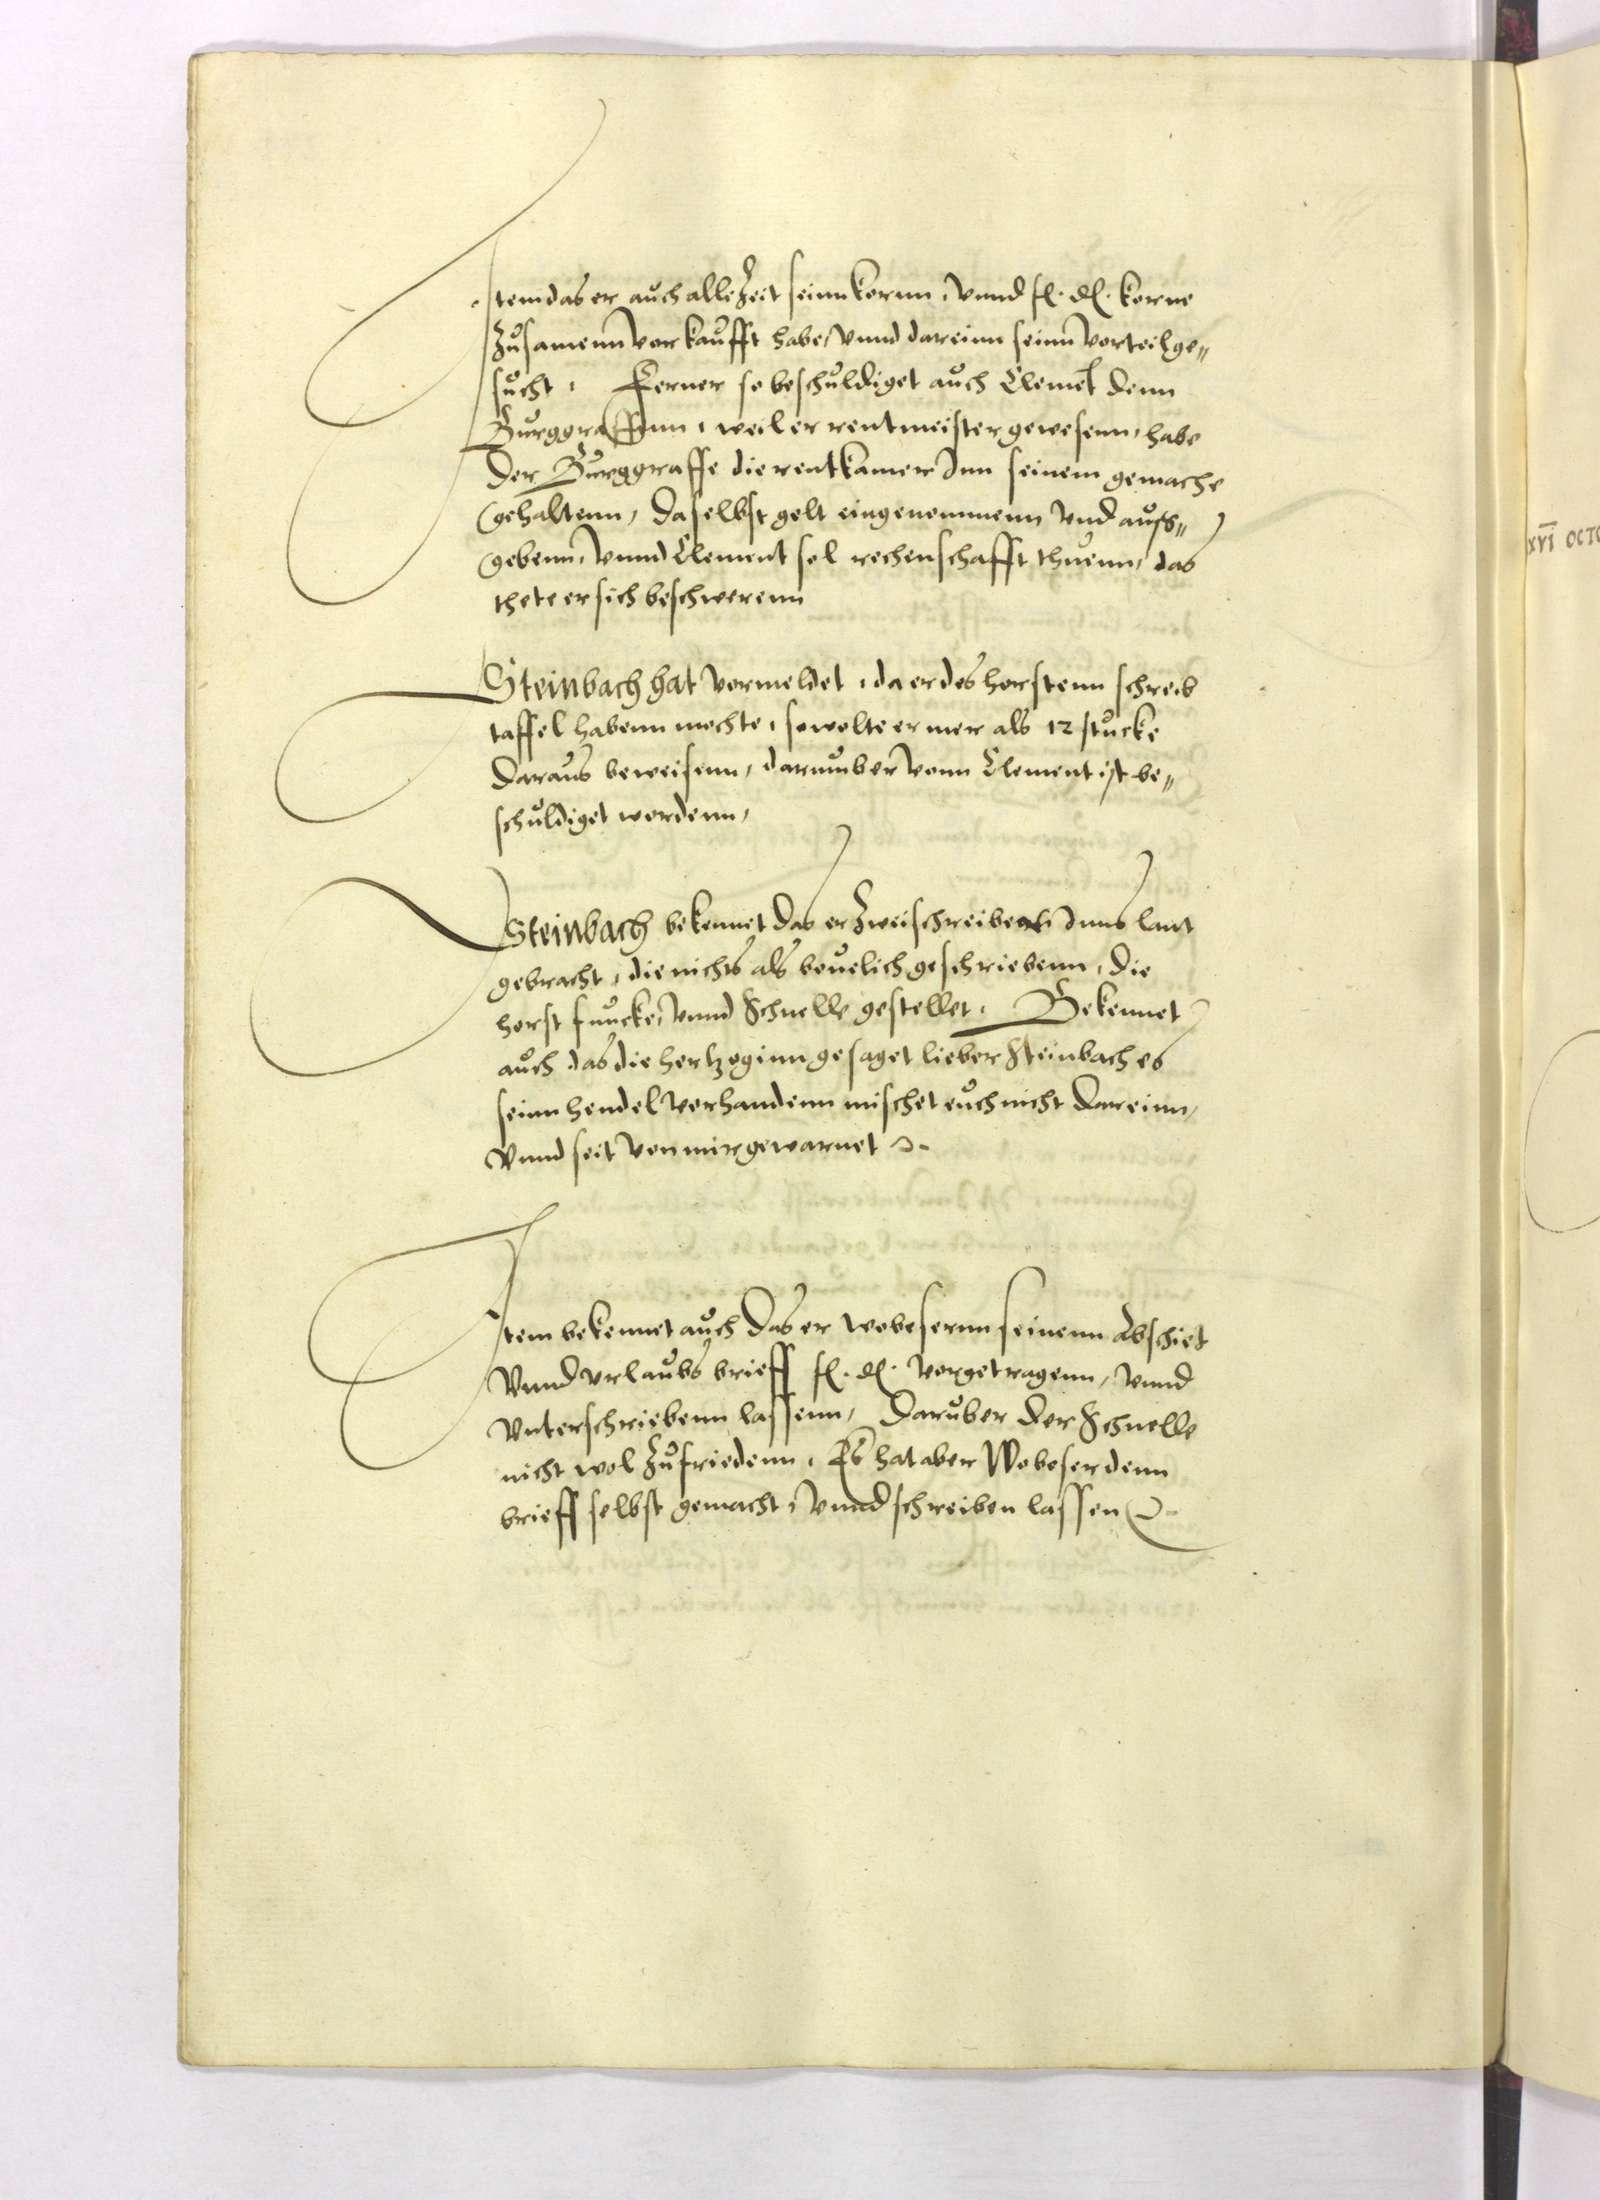 Item das er auch alle Zeit seinn kornn, vnnd fl. dl. korne
Zusamenn vorkaufft habe, vnnd dareinn seinn vorteil ge„
sucht, Ferner so beschuldiget auch Clemet denn
Burggraffenn, weil er rentmeister gewesenn, habe
der Burggraffe die rentkamer Inn seinem gemache
gehaltenn, daselbst gelt eingenommenn vnd auss„
gebenn, vnnd Clement sol rechenschafft thuenn, das
thete er sich beschwerenn
Steinbach hat vormeldet, da er des horstenn schreib
taffel habenn mochte, so wolte er mer als 12 stucke
daraus beweisenn, darumber vonn Clement ist be„
schuldiget wordenn,
Steinbach bekennet das er Zwei schreibenn Inns lant
gebracht, die nichts als beuelich geschriebenn, die
horst funcke, vnnd Schnelle gestellet, Bekennet
auch das die hertzoginn gesaget lieber Steinbach es
seinn hendel vorhandenn mischet euch nicht dareinn,
vnnd seit von mir gewarnet
Item bekennet auch das er wobesernn seinenn Abschiet
vnnd vrlaubs brieff fl. dl. vorgetragenn, vnnd
vnterschriebenn lassenn, daruber der Schnelle
nicht wol Zufriedenn, Es hat aber Wobeser denn
brieff selbst gemacht, vnnd schreiben lassen
XVI OCTO